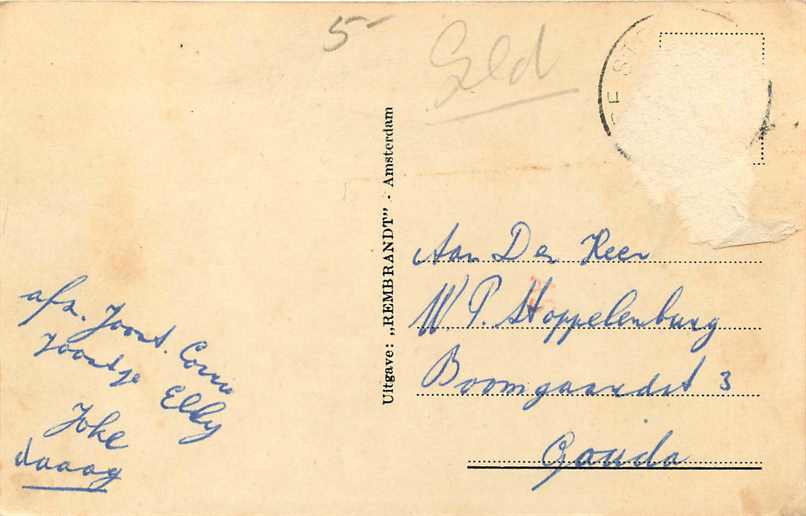 5-
Geld
Uitgave: „REMBRANDT” - Amsterdam
Aan De Heer
W P. Stoppelenburg
Boomgaardst 3
Gouda
afz. Joost. Corrie
Joostje Elly
Joke
daaag